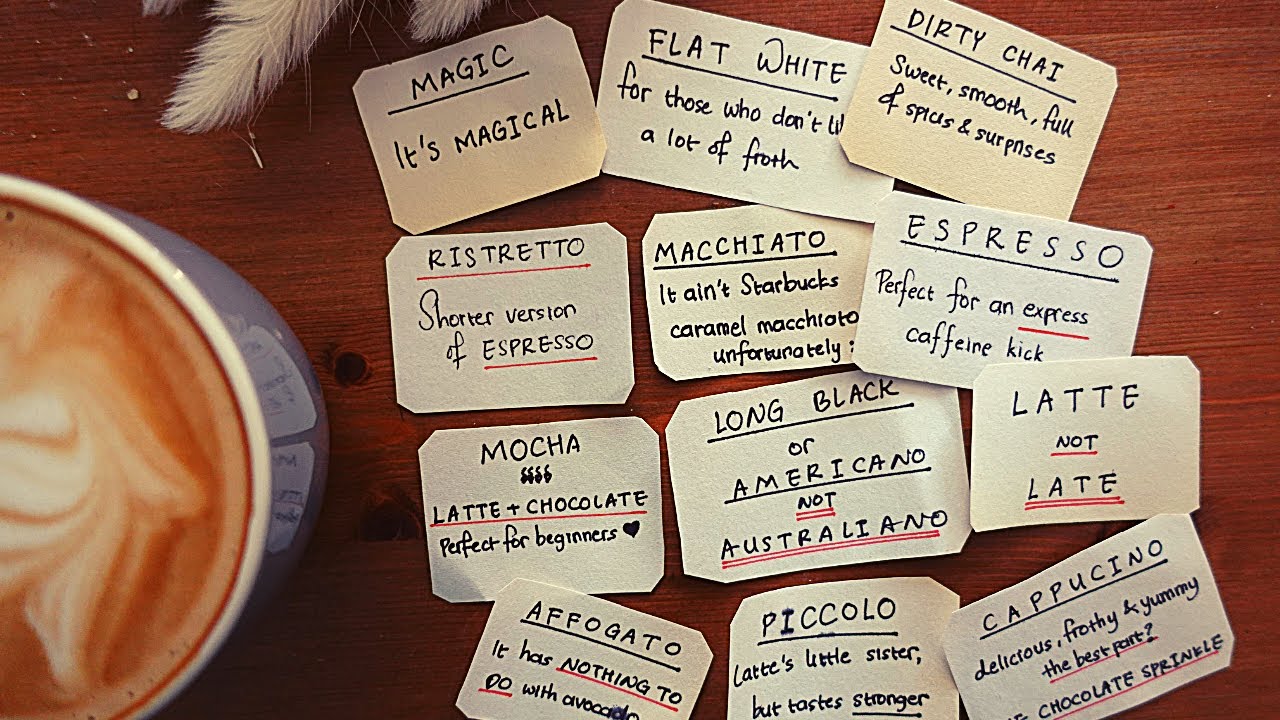 MAGIC
It's MAGICAL
FLAT WHITE
for those who don't
a lot of froth
DIRTY CHAI
Sweet, smooth, full
of spices & surprises
RISTRETTO
Shorter version
of ESPRESSO
MACCHIATO
It ain't Starbucks
caramel macchiato
unfortunately :
ESPRESSO
Perfect for an express
caffeine kick
MOCHA
LATTE + CHOCOLATE
Perfect for beginners ♥
LONG BLACK
or
AMERICANO
NOT
AUSTRALIANO
LATTE
NOT
LATE
AFFOGATO
It has NOTHING TO
DO with avocado
PICCOLO
Latte's little sister,
but tastes stronger
CAPPUCINO
delicious, frothy & yummy
the best part?
CHOCOLATE SPRINKLE